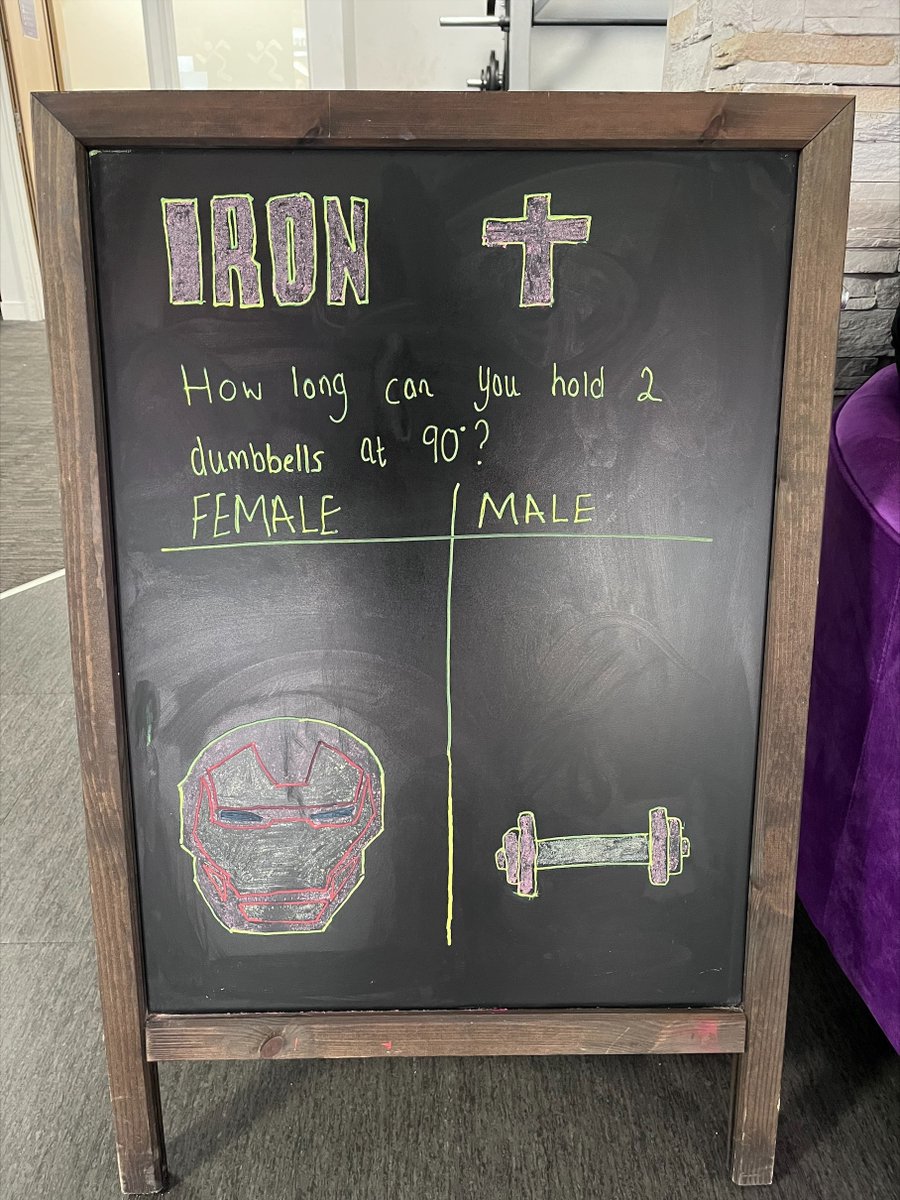 IRON
How long can you hold 2
dumbbells at 90°?
FEMALE MALE